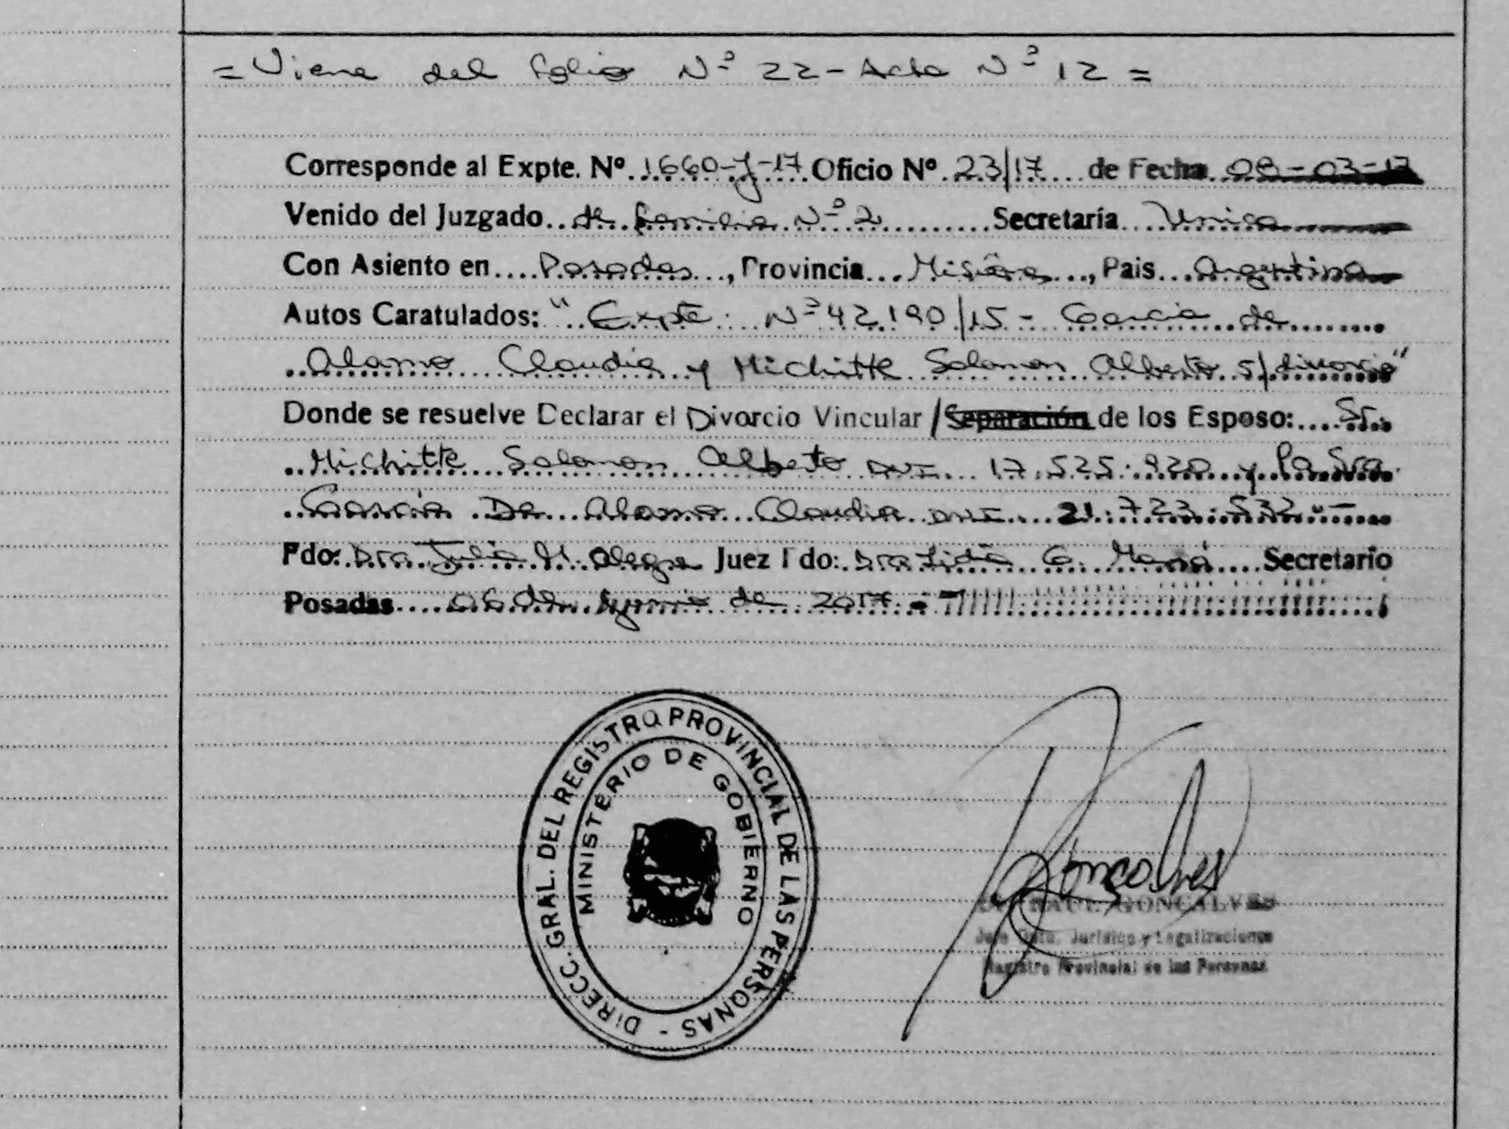 = Viene del folio Nº 22 - Acta Nº 12 =
Corresponde al Expte. Nº 1660-J-17 Oficio Nº 23/17 de Fecha 08-03-17
Venido del Juzgado de familia Nº 2 Secretaría Unica
Con Asiento en Posadas, Provincia Misiones, Pais Argentina
Autos Caratulados: "Expte. Nº 42.190/15 - Garcia de
Alamo Claudia y Michitte Salomon Alberto s/divorcio"
Donde se resuelve Declarar el Divorcio Vincular / Separación de los Esposo: Sr.
Michitte Salomon Alberto DNI 17.525.920 y la Sra.
Garcia De Alamo Claudia DNI 21.723.532.-
Fdo: Dra Julia M. Alegre Juez Fdo: Dra Lidia G. Secretario
Posadas 06 de Junio de 2017.-
DIRECC. GRAL. DEL REGISTRO PROVINCIAL DE LAS PERSONAS -
MINISTERIO DE GOBIERNO
Gonçalves
RAUL GONCALVES
Jefe Dpto. Jurídico y Legalizaciones
Registro Provincial de las Personas